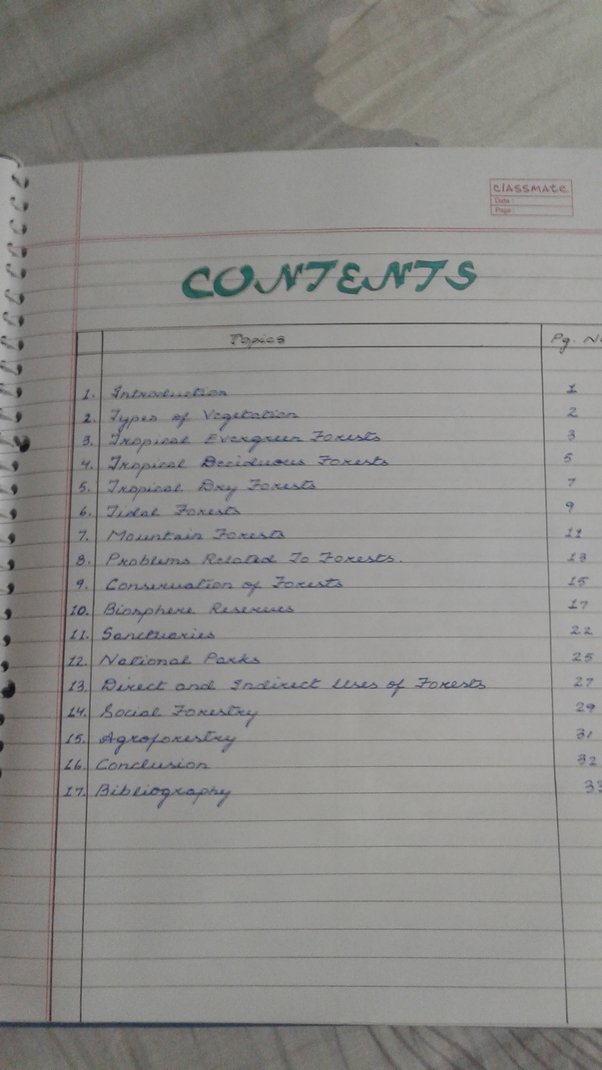 classmate
Date :
Page :
CONTENTS
Topics Pg. No
1. Introduction 1
2. Types of Vegetation 2
3. Tropical Evergreen Forests 3
4. Tropical Deciduous Forests 5
5. Tropical Dry Forests 7
6. Tidal Forests 9
7. Mountain Forests 11
8. Problems Related To Forests. 13
9. Conservation of Forests 15
10. Biosphere Reserves 17
11. Sanctuaries 22
12. National Parks 25
13. Direct and Indirect Uses of Forests 27
14. Social Forestry 29
15. Agroforestry 31
16. Conclusion 32
17. Bibliography 33